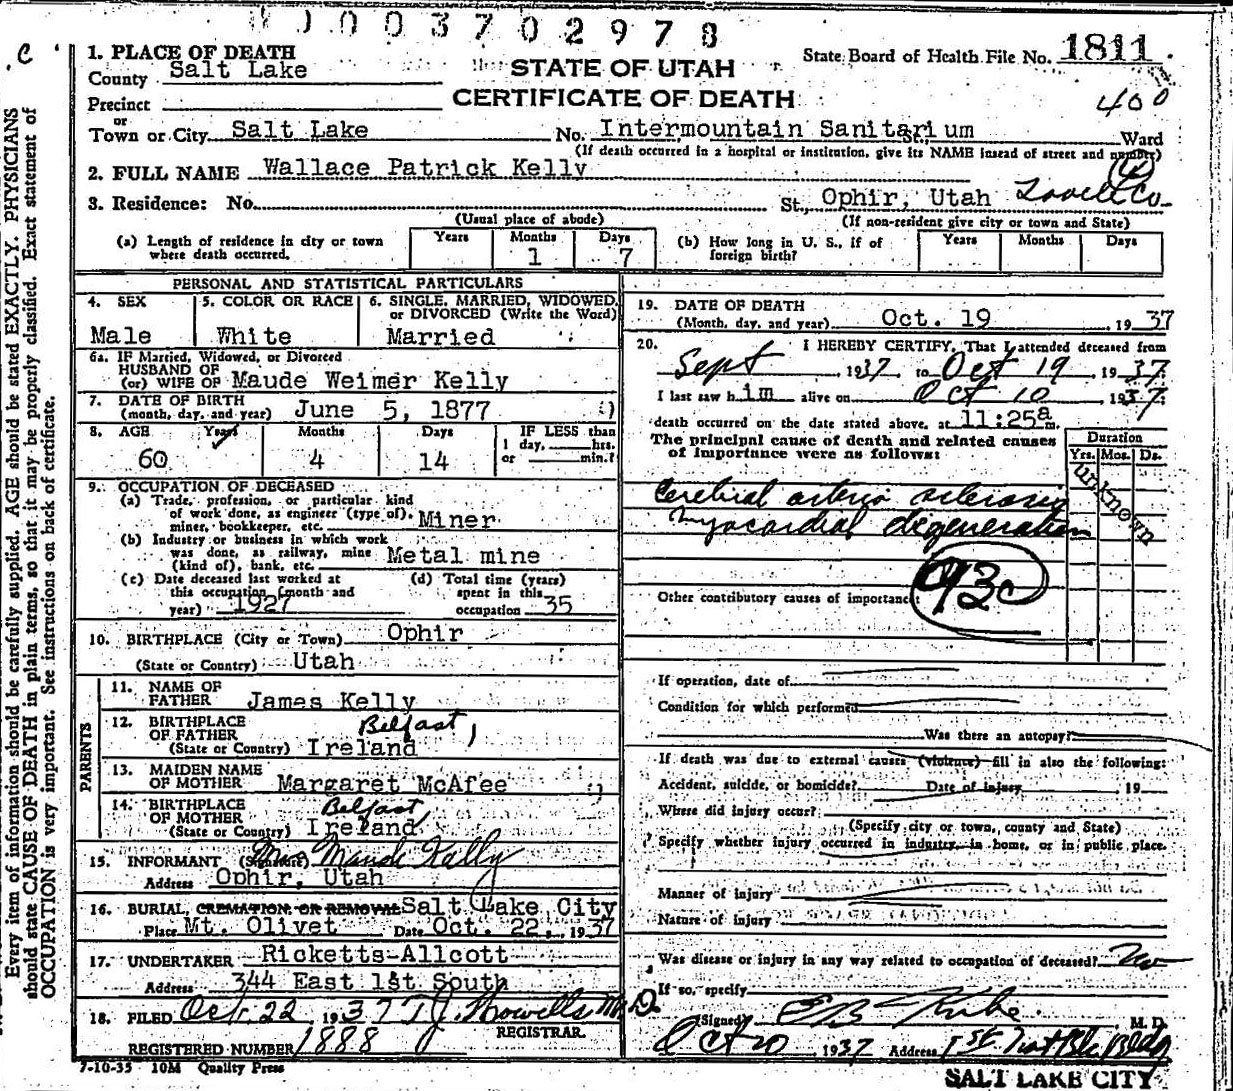 003702978
C
1. PLACE OF DEATH
County Salt Lake
STATE OF UTAH
State Board of Health File No. 1811
CERTIFICATE OF DEATH
400
Precinct
or
Town or City Salt Lake No. Intermountain Sanitarium St., Ward
(If death occurred in a hospital or institution, give its NAME insead of street and number)
2. FULL NAME Wallace Patrick Kelly
3. Residence: No. St., Ophir, Utah
(Usual place of abode) (If non-resident give city or town and State)
(a) Length of residence in city or town where death occurred. Years Months 1 Days 7
(b) How long in U. S., if of foreign birth? Years Months Days
PERSONAL AND STATISTICAL PARTICULARS
4. SEX Male
5. COLOR OR RACE White
6. SINGLE, MARRIED, WIDOWED, or DIVORCED (Write the Word) Married
6a. IF Married, Widowed, or Divorced
HUSBAND OF
(or) WIFE OF Maude Weimer Kelly
7. DATE OF BIRTH
(month, day, and year) June 5, 1877
8. AGE Years 60 Months 4 Days 14
IF LESS than
1 day, hrs.
or min.?
9. OCCUPATION OF DECEASED
(a) Trade, profession, or particular kind
of work done, as engineer (type of),
miner, bookkeeper, etc. Miner
(b) Industry or business in which work
was done, as railway, mine
(kind of), bank, etc. Metal mine
(c) Date deceased last worked at
this occupation (month and
year) 1927
(d) Total time (years)
spent in this
occupation 35
10. BIRTHPLACE (City or Town) Ophir
(State or Country) Utah
PARENTS
11. NAME OF
FATHER James Kelly
12. BIRTHPLACE
OF FATHER Belfast,
(State or Country) Ireland
13. MAIDEN NAME
OF MOTHER Margaret McAfee
14. BIRTHPLACE
OF MOTHER Belfast,
(State or Country) Ireland
15. INFORMANT Mrs Maude Kelly
Address Ophir, Utah
16. BURIAL, CREMATION, OR REMOVAL Salt Lake City
Place Mt. Olivet Date Oct. 22, 1937
17. UNDERTAKER Ricketts-Allcott
Address 344 East 1st South
18. FILED Oct. 22 1937 T J Howells M.D.
REGISTRAR.
REGISTERED NUMBER 1888
7-10-35 10M Quality Press
19. DATE OF DEATH
(Month, day, and year) Oct. 19, 1937
20. I HEREBY CERTIFY, That I attended deceased from
Sept, 1937 to Oct 19, 1937
I last saw him alive on Oct 10, 1937
death occurred on the date stated above, at 11:25a m.
The principal cause of death and related causes
of importance were as follows:
Duration
Yrs. Mos. Ds.
unknown
Cerebral arterio sclerosis
Myocardial degeneration
93c
Other contributory causes of importance:
If operation, date of
Condition for which performed
Was there an autopsy?
If death was due to external causes (violence) fill in also the following:
Accident, suicide, or homicide? Date of injury, 19
Where did injury occur?
(Specify city or town, county and State)
Specify whether injury occurred in industry, in home, or in public place.
Manner of injury
Nature of injury
Was disease or injury in any way related to occupation of deceased? No
If so, specify
(Signed) M. D.
Oct 20, 1937 Address 1st Nat Bk Bldg
SALT LAKE CITY
Every item of information should be carefully supplied. AGE should be stated EXACTLY. PHYSICIANS
should state CAUSE OF DEATH in plain terms, so that it may be properly classified. Exact statement of
OCCUPATION is very important. See instructions on back of certificate.